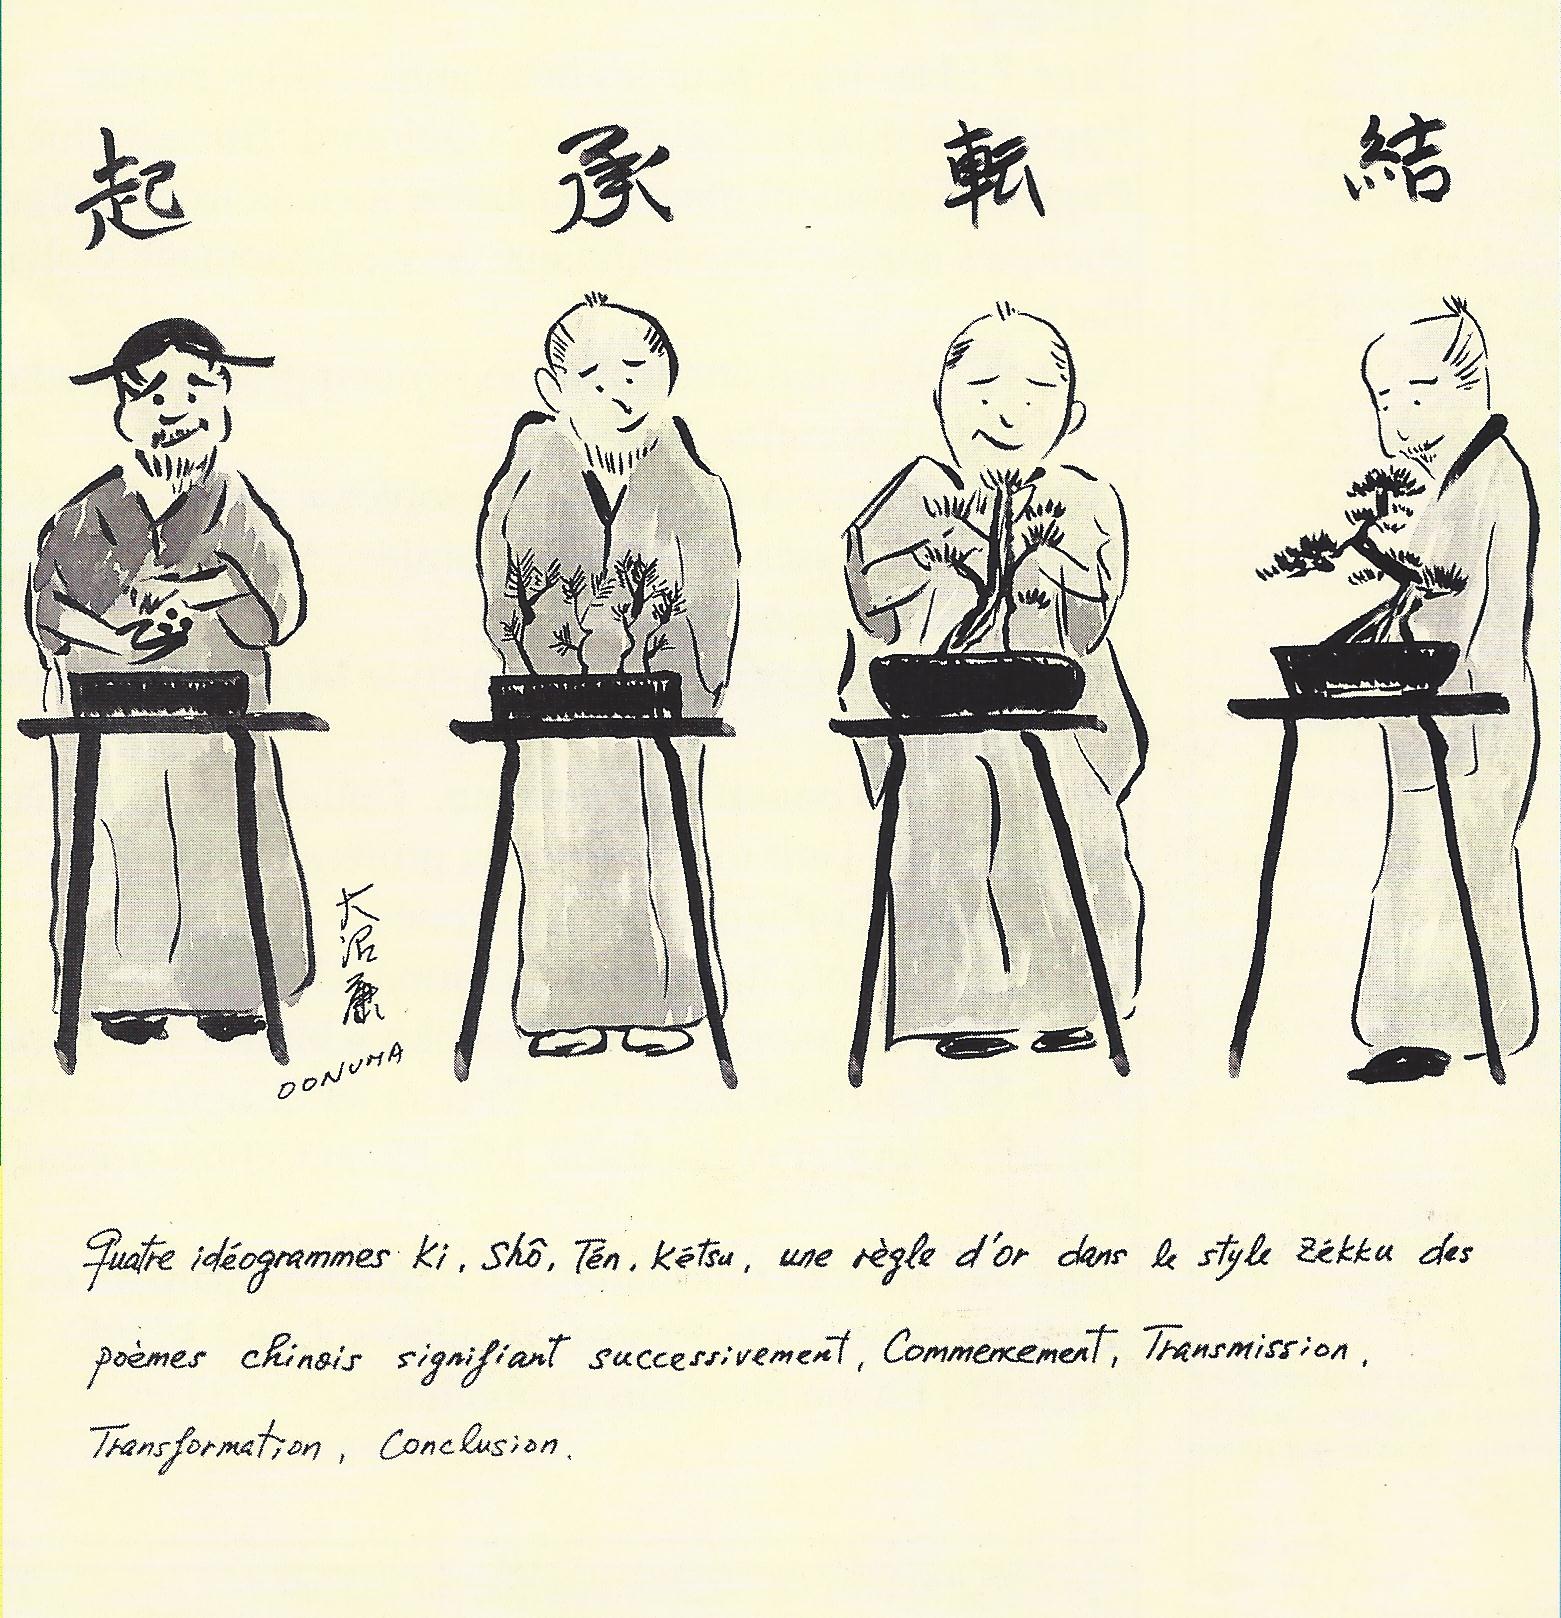 起 承 転 結
大沼康
OONUMA
Quatre idéogrammes Ki, Shô, Tén, Kétsu, une règle d'or dans le style Zékku des
poèmes chinois signifiant successivement, Commencement, Transmission,
Transformation, Conclusion.